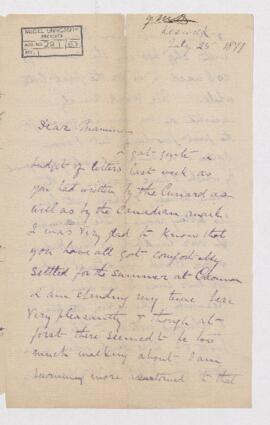 McGILL UNIVERSITY
ARCHIVES
ACC. NO.
REF.
July 25 1871
Dear Mamma
I got quite a
budget of letters last week as
you had written by the Cunard as
well as by the Canadian mail.
I was very glad to know that
you have all got comfortably
settled for the summer at
I am spending my time here
very pleasantly & though at
first there seemed to be too
much walking about I am
more accustomed to that